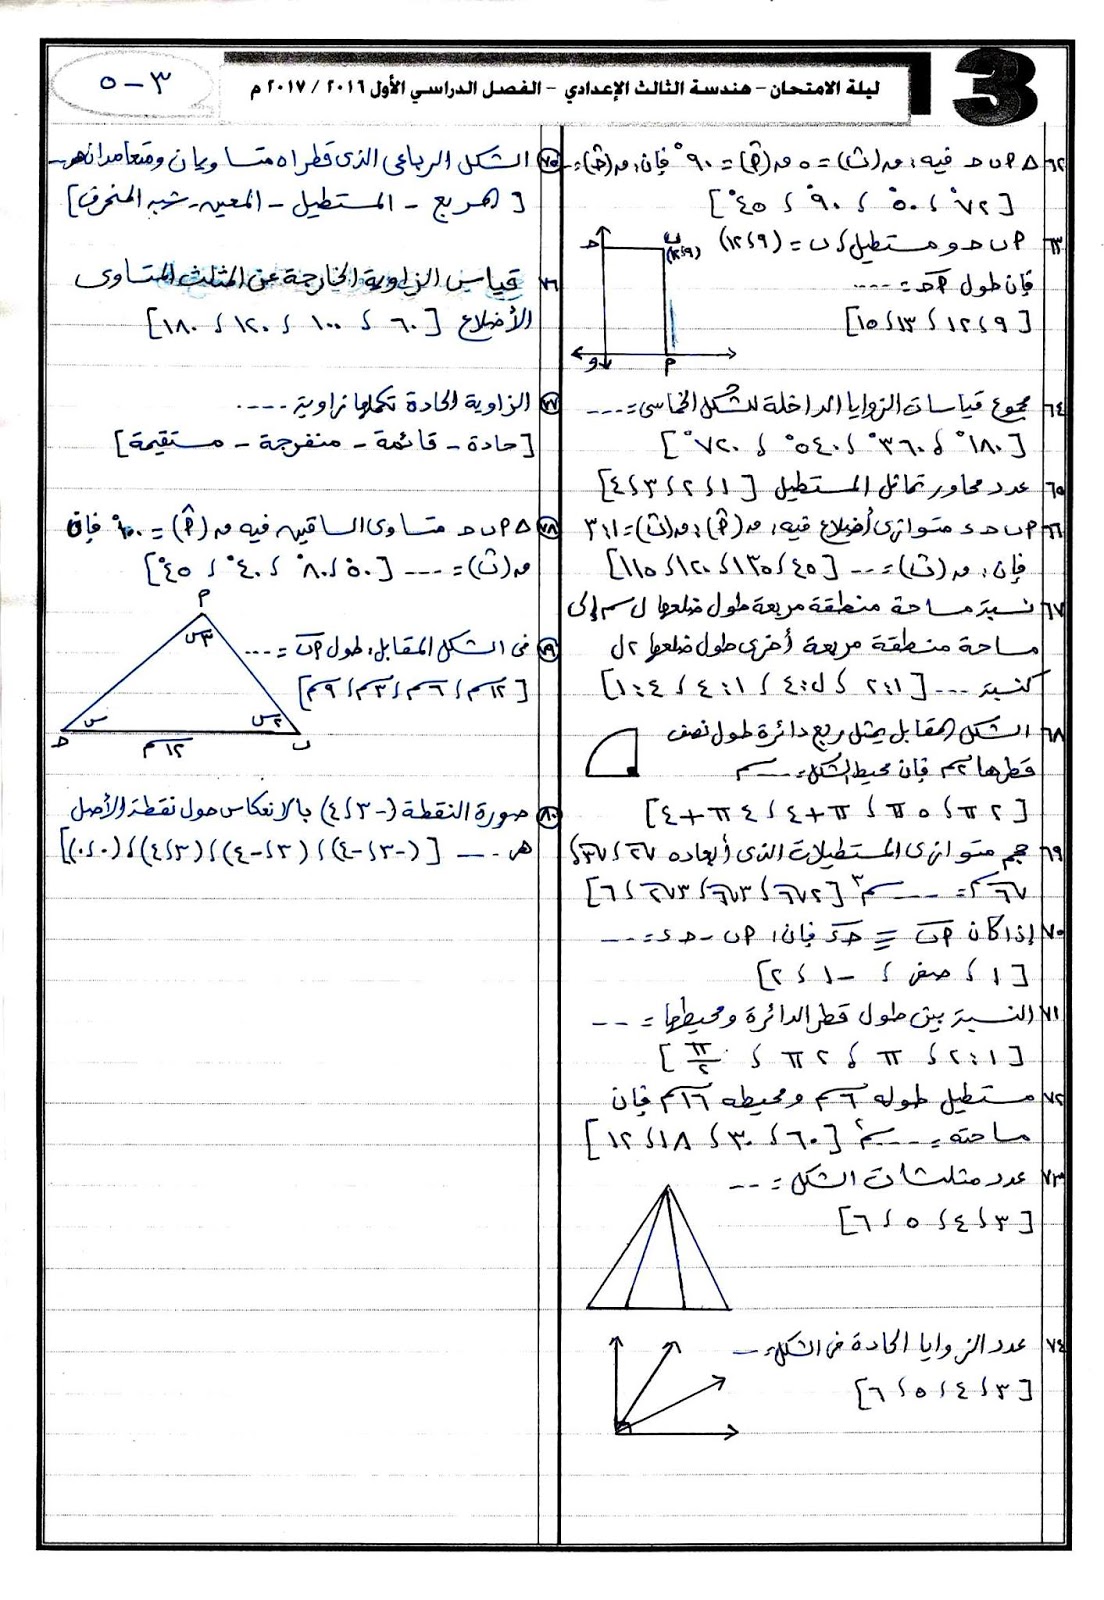 3
ليلة الامتحان - هندسة الثالث الإعدادي - الفصل الدراسي الأول ٢٠١٦ / ٢٠١٧ م
٣ - ٥
٦٢ Δ ا ب ح فيه: ٥ = (ب) ٩٠° = (ا) فإن:
[٧٢° ، ٥٠° ، ٩٠° ، ٤٥°]
٦٣ ا ب ح و مستطيل، ب = (٩، ١٢)
فإن طول ا ح = ....
[٩، ١٢، ١٣، ١٥]
ح
ب
(٩، ١٢)
و
ا
٦٤ مجموع قياسات الزوايا الداخلة للشكل الخماسى = ....
[١٨٠° ، ٣٦٠° ، ٥٤٠° ، ٧٢٠°]
٦٥ عدد محاور تماثل المستطيل [١، ٢، ٣، ٤]
٦٦ ا ب ح د متوازى أضلاع فيه: ق(ا) : ق(ب) = ١ : ٣
فإن: ق(ب) = ... [٤٥، ١٣٥، ١٢٠، ١١٥]
٦٧ نسبة مساحة منطقة مربعة طول ضلعها ل سم إلى
مساحة منطقة مربعة أخرى طول ضلعها ٢ل
كنسبة .... [١:٢ ، ل:٤ ، ١:٤ ، ٤:١]
٦٨ الشكل المقابل يمثل ربع دائرة طول نصف
قطرها ٢سم فإن محيط الشكل = .... سم
[٢π ، ٥π ، π+٤ ، ٤π+٤]
٦٩ حجم متوازى المستطيلات الذى أبعاده √٢ ، √٣ ،
√٦ سم = .... سم٣ [٢√٦ ، ٣√٦ ، ٣√٢ ، ٦]
٧٠ إذا كان ا ب ≡ ح د فإن: ا ب - ح د = ....
[١ ، صفر ، -١ ، ٢]
٧١ النسبة بين طول قطر الدائرة ومحيطها = ...
[١:٢ ، π ، ٢π ، π/٢]
٧٢ مستطيل طوله ٦سم ومحيطه ١٦سم فإن
مساحته = .... سم٢ [٦٠ ، ٣٠ ، ١٨ ، ١٢]
٧٣ عدد مثلثات الشكل = ...
[٣، ٤، ٥، ٦]
٧٤ عدد الزوايا الحادة فى الشكل = ..
[٣، ٤، ٥، ٦]
٧٥ الشكل الرباعى الذى قطراه متساويان ومتعامدان هو ..
[المربع - المستطيل - المعين - شبه المنحرف]
٧٦ قياس الزاوية الخارجة عن المثلث المتساوى
الأضلاع [٦٠ ، ١٠٠ ، ١٢٠ ، ١٨٠]
٧٧ الزاوية الحادة تكملها زاوية ....
[حادة - قائمة - منفرجة - مستقيمة]
٧٨ Δ ا ب ح متساوى الساقين فيه ق(ا) = ١٠٠° فإن
ق(ب) = .... [٥٠° ، ٨٠° ، ٤٠° ، ٤٥°]
٧٩ فى الشكل المقابل: طول ا ب = ...
[١٢سم ، ٦سم ، ٣سم ، ٩سم]
ا
٣س
س
٢س
ح
ب
١٢سم
٨٠ صورة النقطة (-٣، ٤) بالانعكاس حول نقطة الأصل
هى .... [(-٣، -٤) ، (٣، -٤) ، (٣، ٤) ، (٠، ٠)]